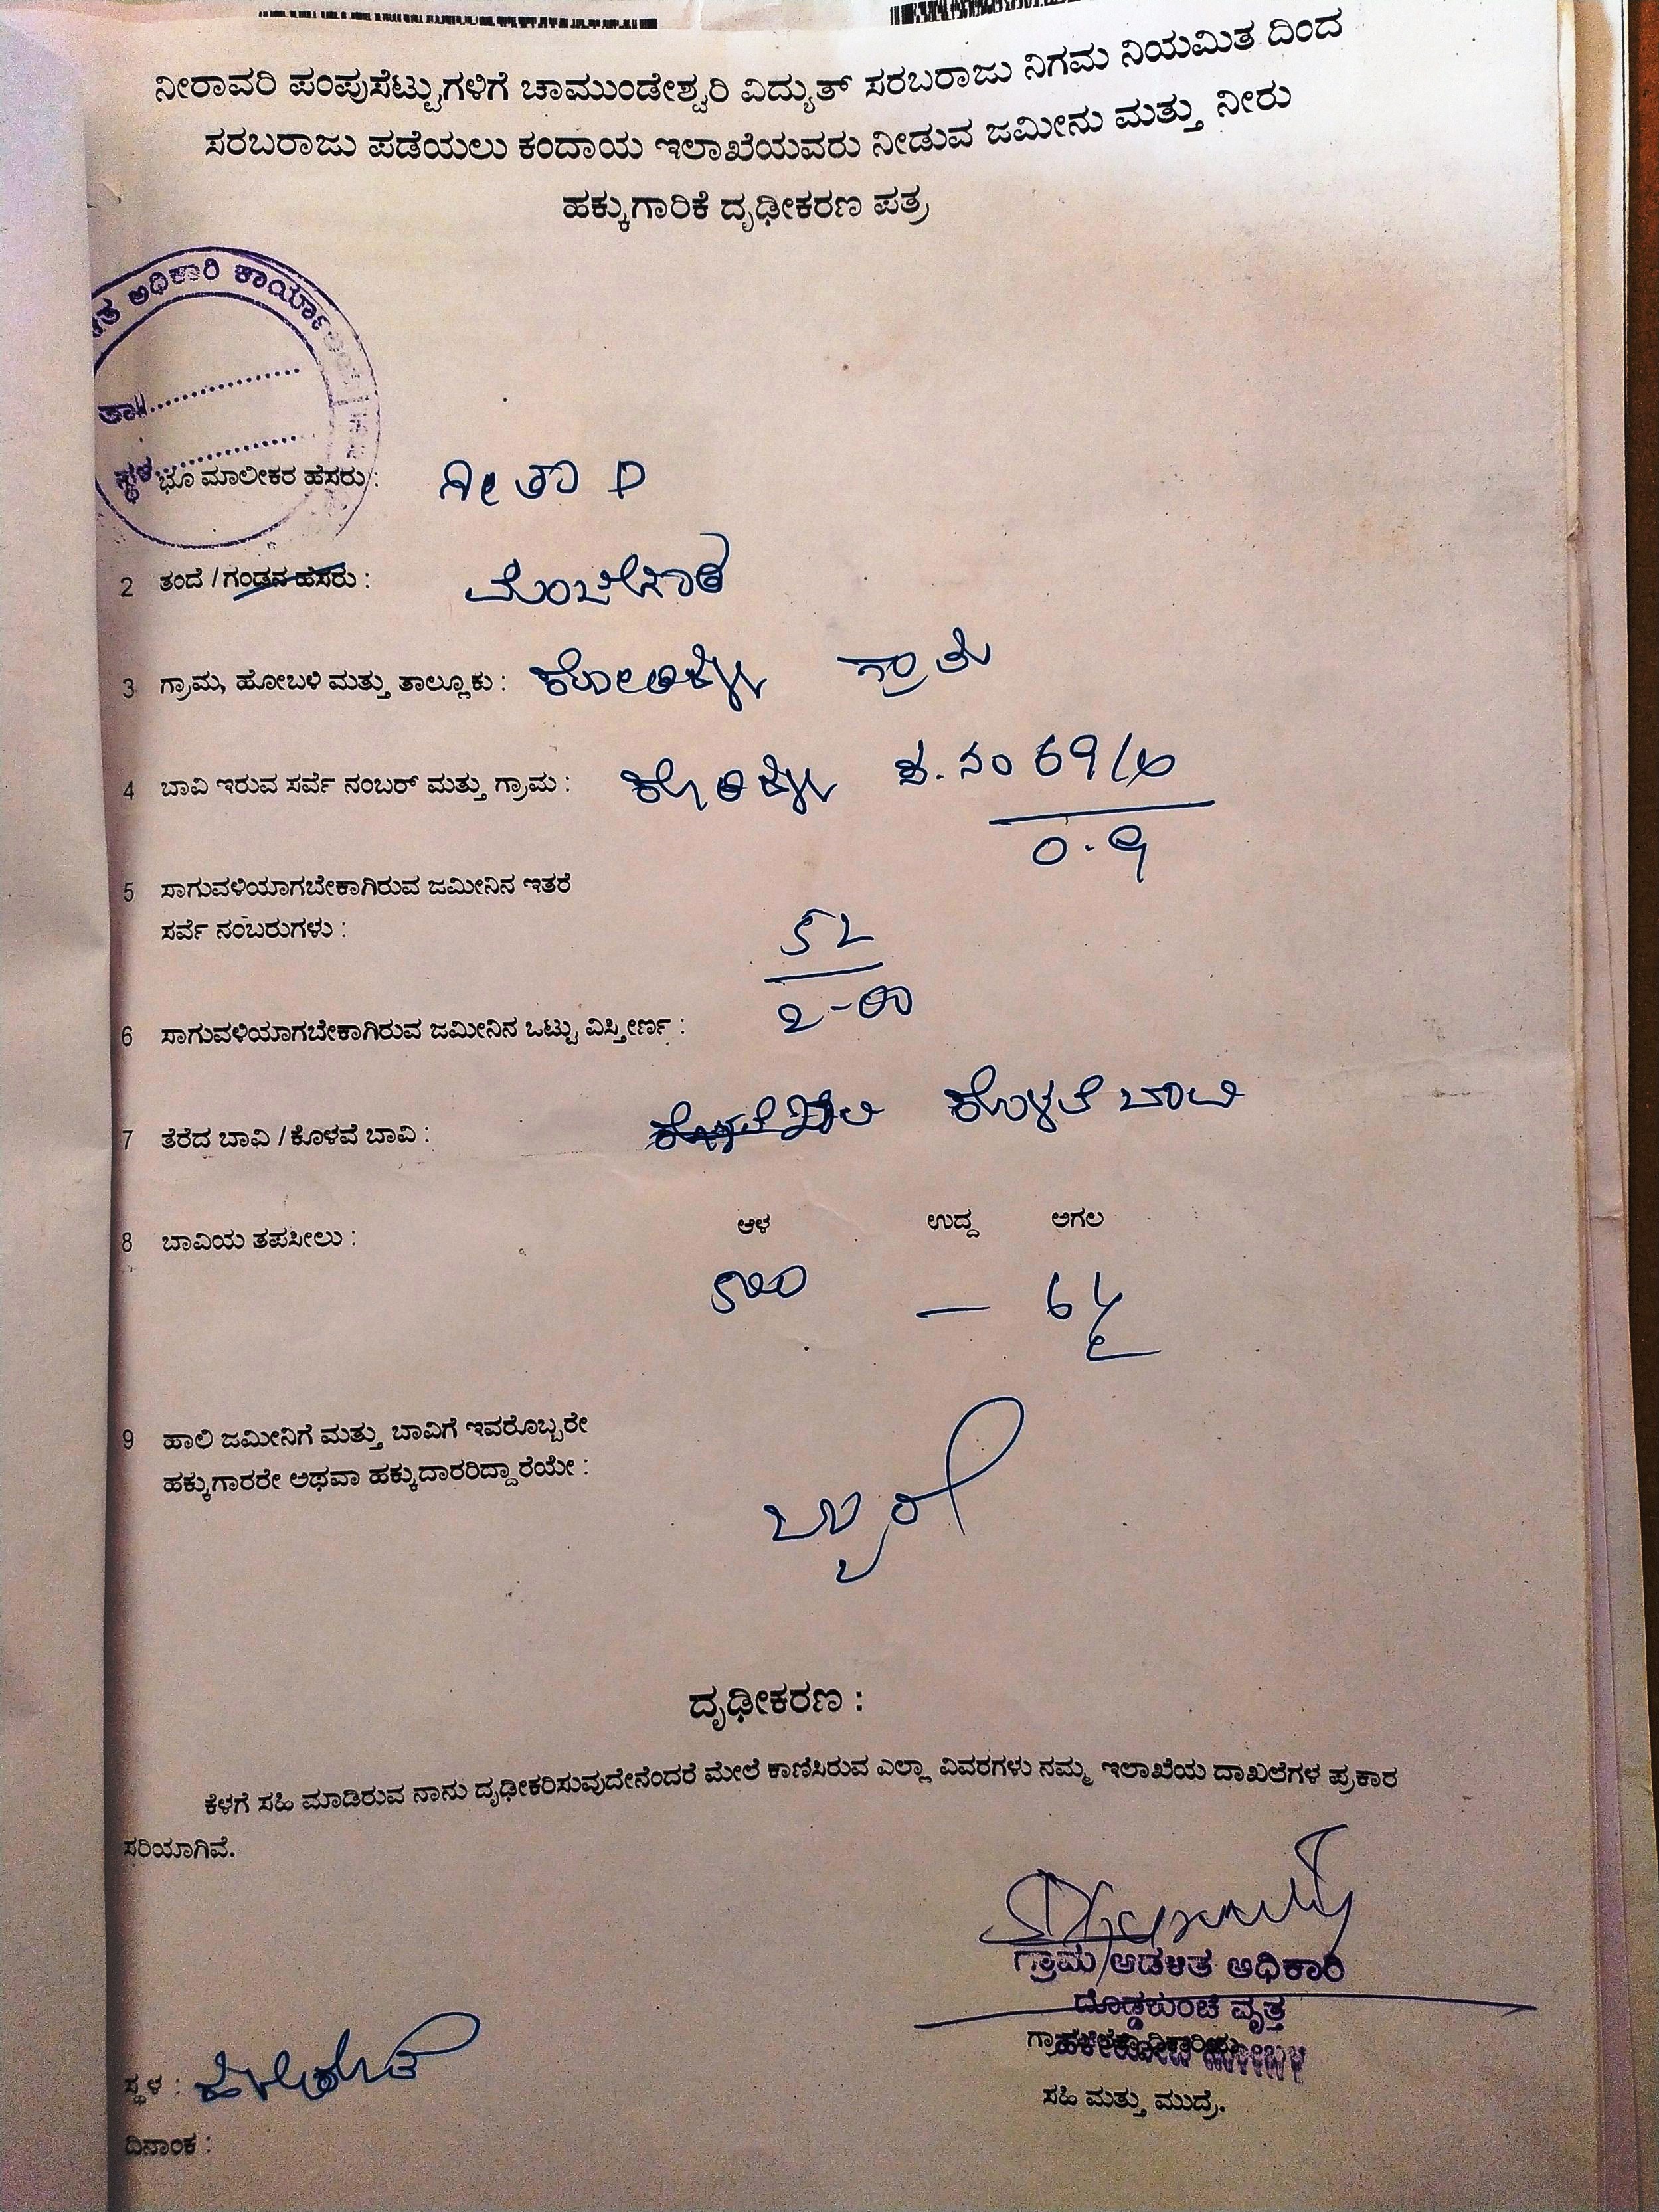 ನೀರಾವರಿ ಪಂಪುಸೆಟ್ಟುಗಳಿಗೆ ಚಾಮುಂಡೇಶ್ವರಿ ವಿದ್ಯುತ್ ಸರಬರಾಜು ನಿಗಮ ನಿಯಮಿತ ದಿಂದ
ಸರಬರಾಜು ಪಡೆಯಲು ಕಂದಾಯ ಇಲಾಖೆಯವರು ನೀಡುವ ಜಮೀನು ಮತ್ತು ನೀರು
ಹಕ್ಕುಗಾರಿಕೆ ದೃಢೀಕರಣ ಪತ್ರ
ಅಧಿಕಾರಿ
ತಾ||
ಸ್ಥಳ
ಭೂ ಮಾಲೀಕರ ಹೆಸರು : ಗೀತಾ D
2 ತಂದೆ / ಗಂಡನ ಹೆಸರು :
3 ಗ್ರಾಮ, ಹೋಬಳಿ ಮತ್ತು ತಾಲ್ಲೂಕು :
4 ಬಾವಿ ಇರುವ ಸರ್ವೆ ನಂಬರ್ ಮತ್ತು ಗ್ರಾಮ :
5 ಸಾಗುವಳಿಯಾಗಬೇಕಾಗಿರುವ ಜಮೀನಿನ ಇತರೆ
ಸರ್ವೆ ನಂಬರುಗಳು : 52
6 ಸಾಗುವಳಿಯಾಗಬೇಕಾಗಿರುವ ಜಮೀನಿನ ಒಟ್ಟು ವಿಸ್ತೀರ್ಣ : 2-00
7 ತೆರೆದ ಬಾವಿ / ಕೊಳವೆ ಬಾವಿ : ಕೊಳವೆ ಬಾವಿ
8 ಬಾವಿಯ ತಪಸೀಲು : ಆಳ ಉದ್ದ ಅಗಲ
500 — 6½
9 ಹಾಲಿ ಜಮೀನಿಗೆ ಮತ್ತು ಬಾವಿಗೆ ಇವರೊಬ್ಬರೇ
ಹಕ್ಕುಗಾರರೇ ಅಥವಾ ಹಕ್ಕುದಾರರಿದ್ದಾರೆಯೇ :
ದೃಢೀಕರಣ :
ಕೆಳಗೆ ಸಹಿ ಮಾಡಿರುವ ನಾನು ದೃಢೀಕರಿಸುವುದೇನೆಂದರೆ ಮೇಲೆ ಕಾಣಿಸಿರುವ ಎಲ್ಲಾ ವಿವರಗಳು ನಮ್ಮ ಇಲಾಖೆಯ ದಾಖಲೆಗಳ ಪ್ರಕಾರ
ಸರಿಯಾಗಿವೆ.
ಗ್ರಾಮ ಆಡಳಿತ ಅಧಿಕಾರಿ
ದೊಡ್ಡಕುಂಚೆ ವೃತ್ತ
ಸ್ಥಳ :
ಸಹಿ ಮತ್ತು ಮುದ್ರೆ.
ದಿನಾಂಕ :